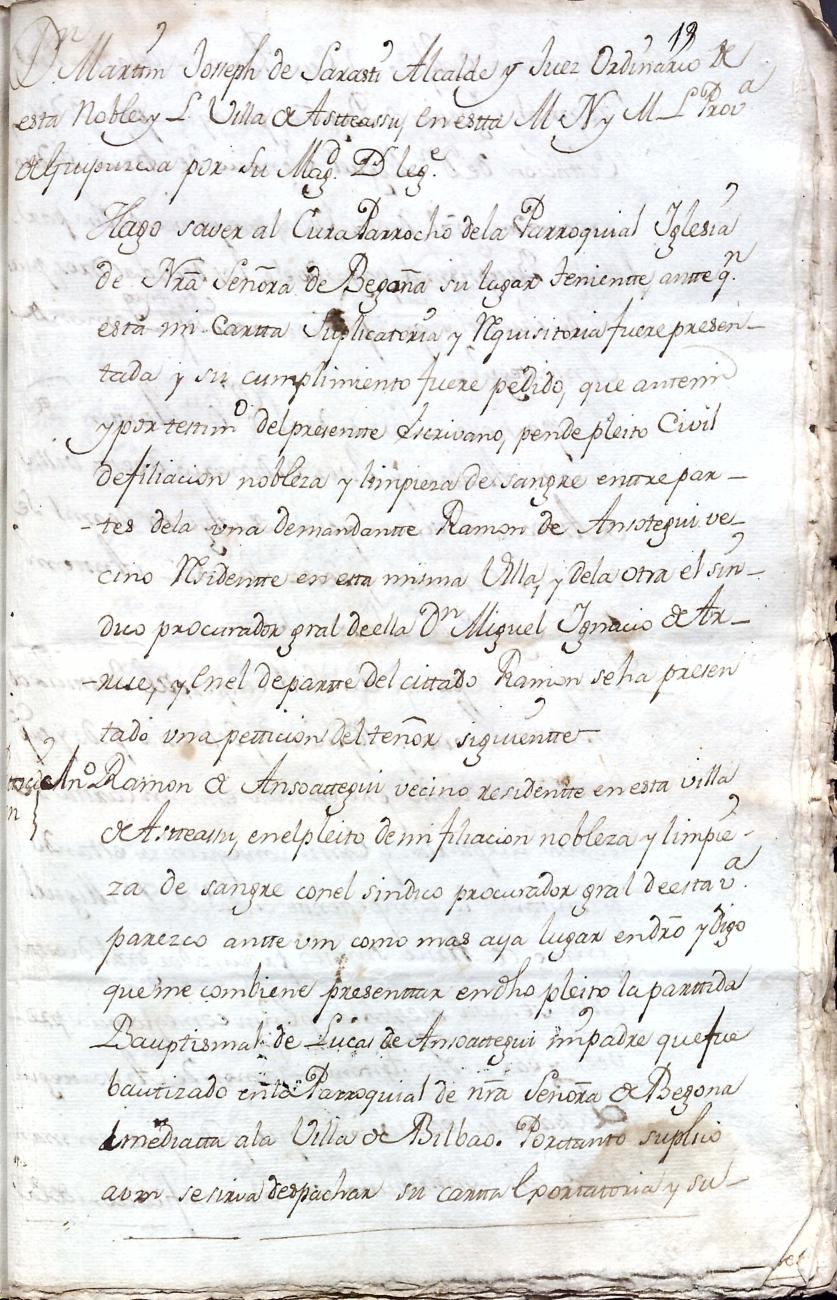 18
Dn Martin Joseph de Sarasti Alcalde y Juez Ordinario de
esta Noble y L. Villa de Astteassu, en estta M N y M L Prova
de Guipuzcoa por su Magd D. lege.
Hago saver al Cura Parrocho dela Parroquial Iglesia
de Nra Señora de Begoña su lugar teniente, antte qn
esta mi Cartta Suplicatoria y Rquisitoria fuere presen-
tada y su cumplimiento fuere pedido, que antemi
y por testimo del presentte Escrivano, pende pleito Civil
de filiacion nobleza y limpieza de sangre enttre par-
-tes dela vna demandantte Ramon de Ansotegui ve-
cino Rsidentte en esta misma Villa, y dela otra el sin-
dico procurador gral de ella Dn Miguel Ignacio de Ar-
-rue, y en el de partte del cittado Ramon se ha presen
tado vna petticion del tenor siguientte
Ramon de Ansoattegui vecino residentte en esta villa
de Astteassu, en el pleito de mi filiacion nobleza y limpie-
za de sangre con el sindico procurador gral de esta va.
parezco antte vm como mas aya lugar en dro y Digo
que me combiene presenttar en dho pleito la parttida
Bauptismal de Lucas de Ansoattegui mi padre que fue
bautizado en la Parroquial de nra Señora de Begona
inmediatta ala Villa de Bilbao. Portanto suplico
avm se sirva despachar su cartta Exortatoria y su-